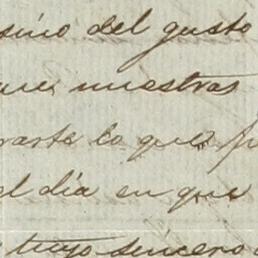 sino del gusto
que nuestras
rarte lo que p
el dia en que
tuyo sincero